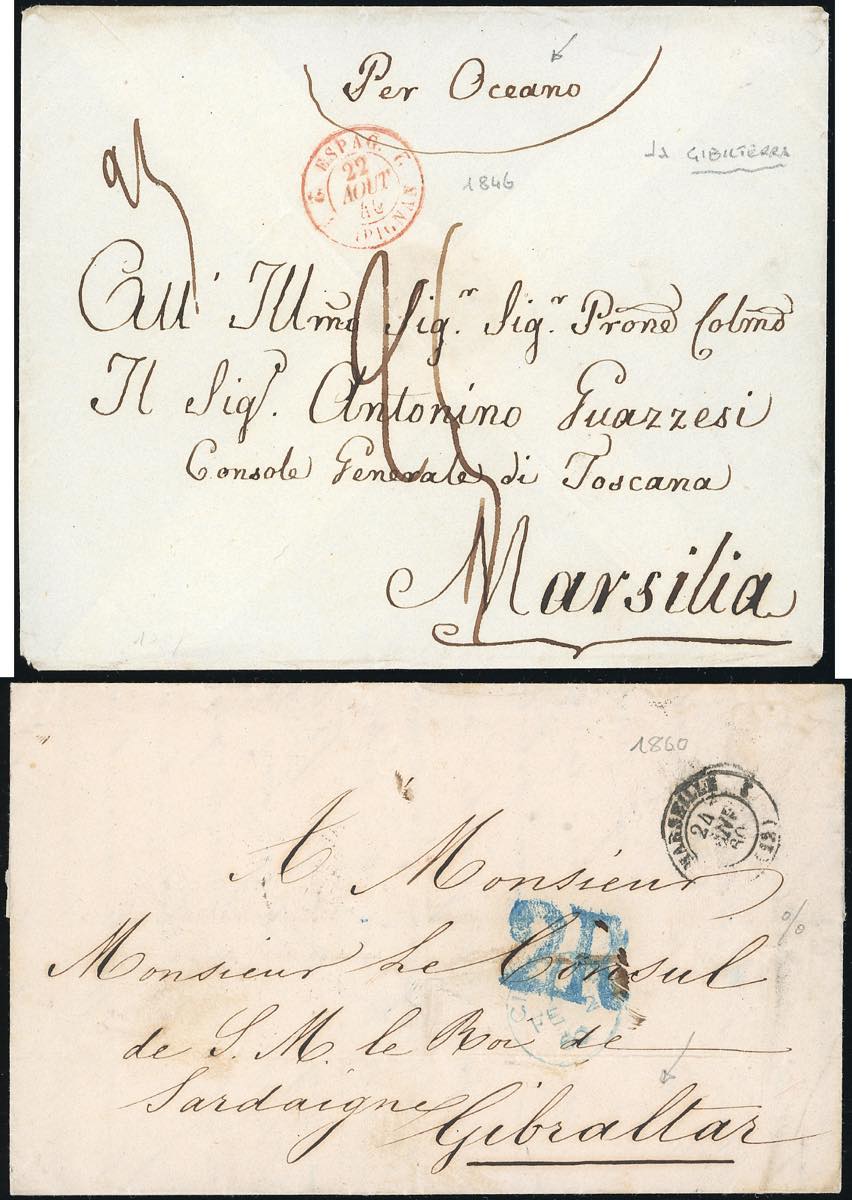 Per Oceano
da GIBILTERRA
2 ESPAG. 2
22
AOUT
46
PIGNAN
1846
25
All' Illmo Sigr. Sigr. Prone Colmo
Il Sigr. Antonino Guazzesi
Console Generale di Toscana
Marsilia
1860
MARSEILLE
24
(12)
A Monsieur
%
Monsieur Le Consul
2R
de S. M. le Roi de
Sardaigne Gibraltar